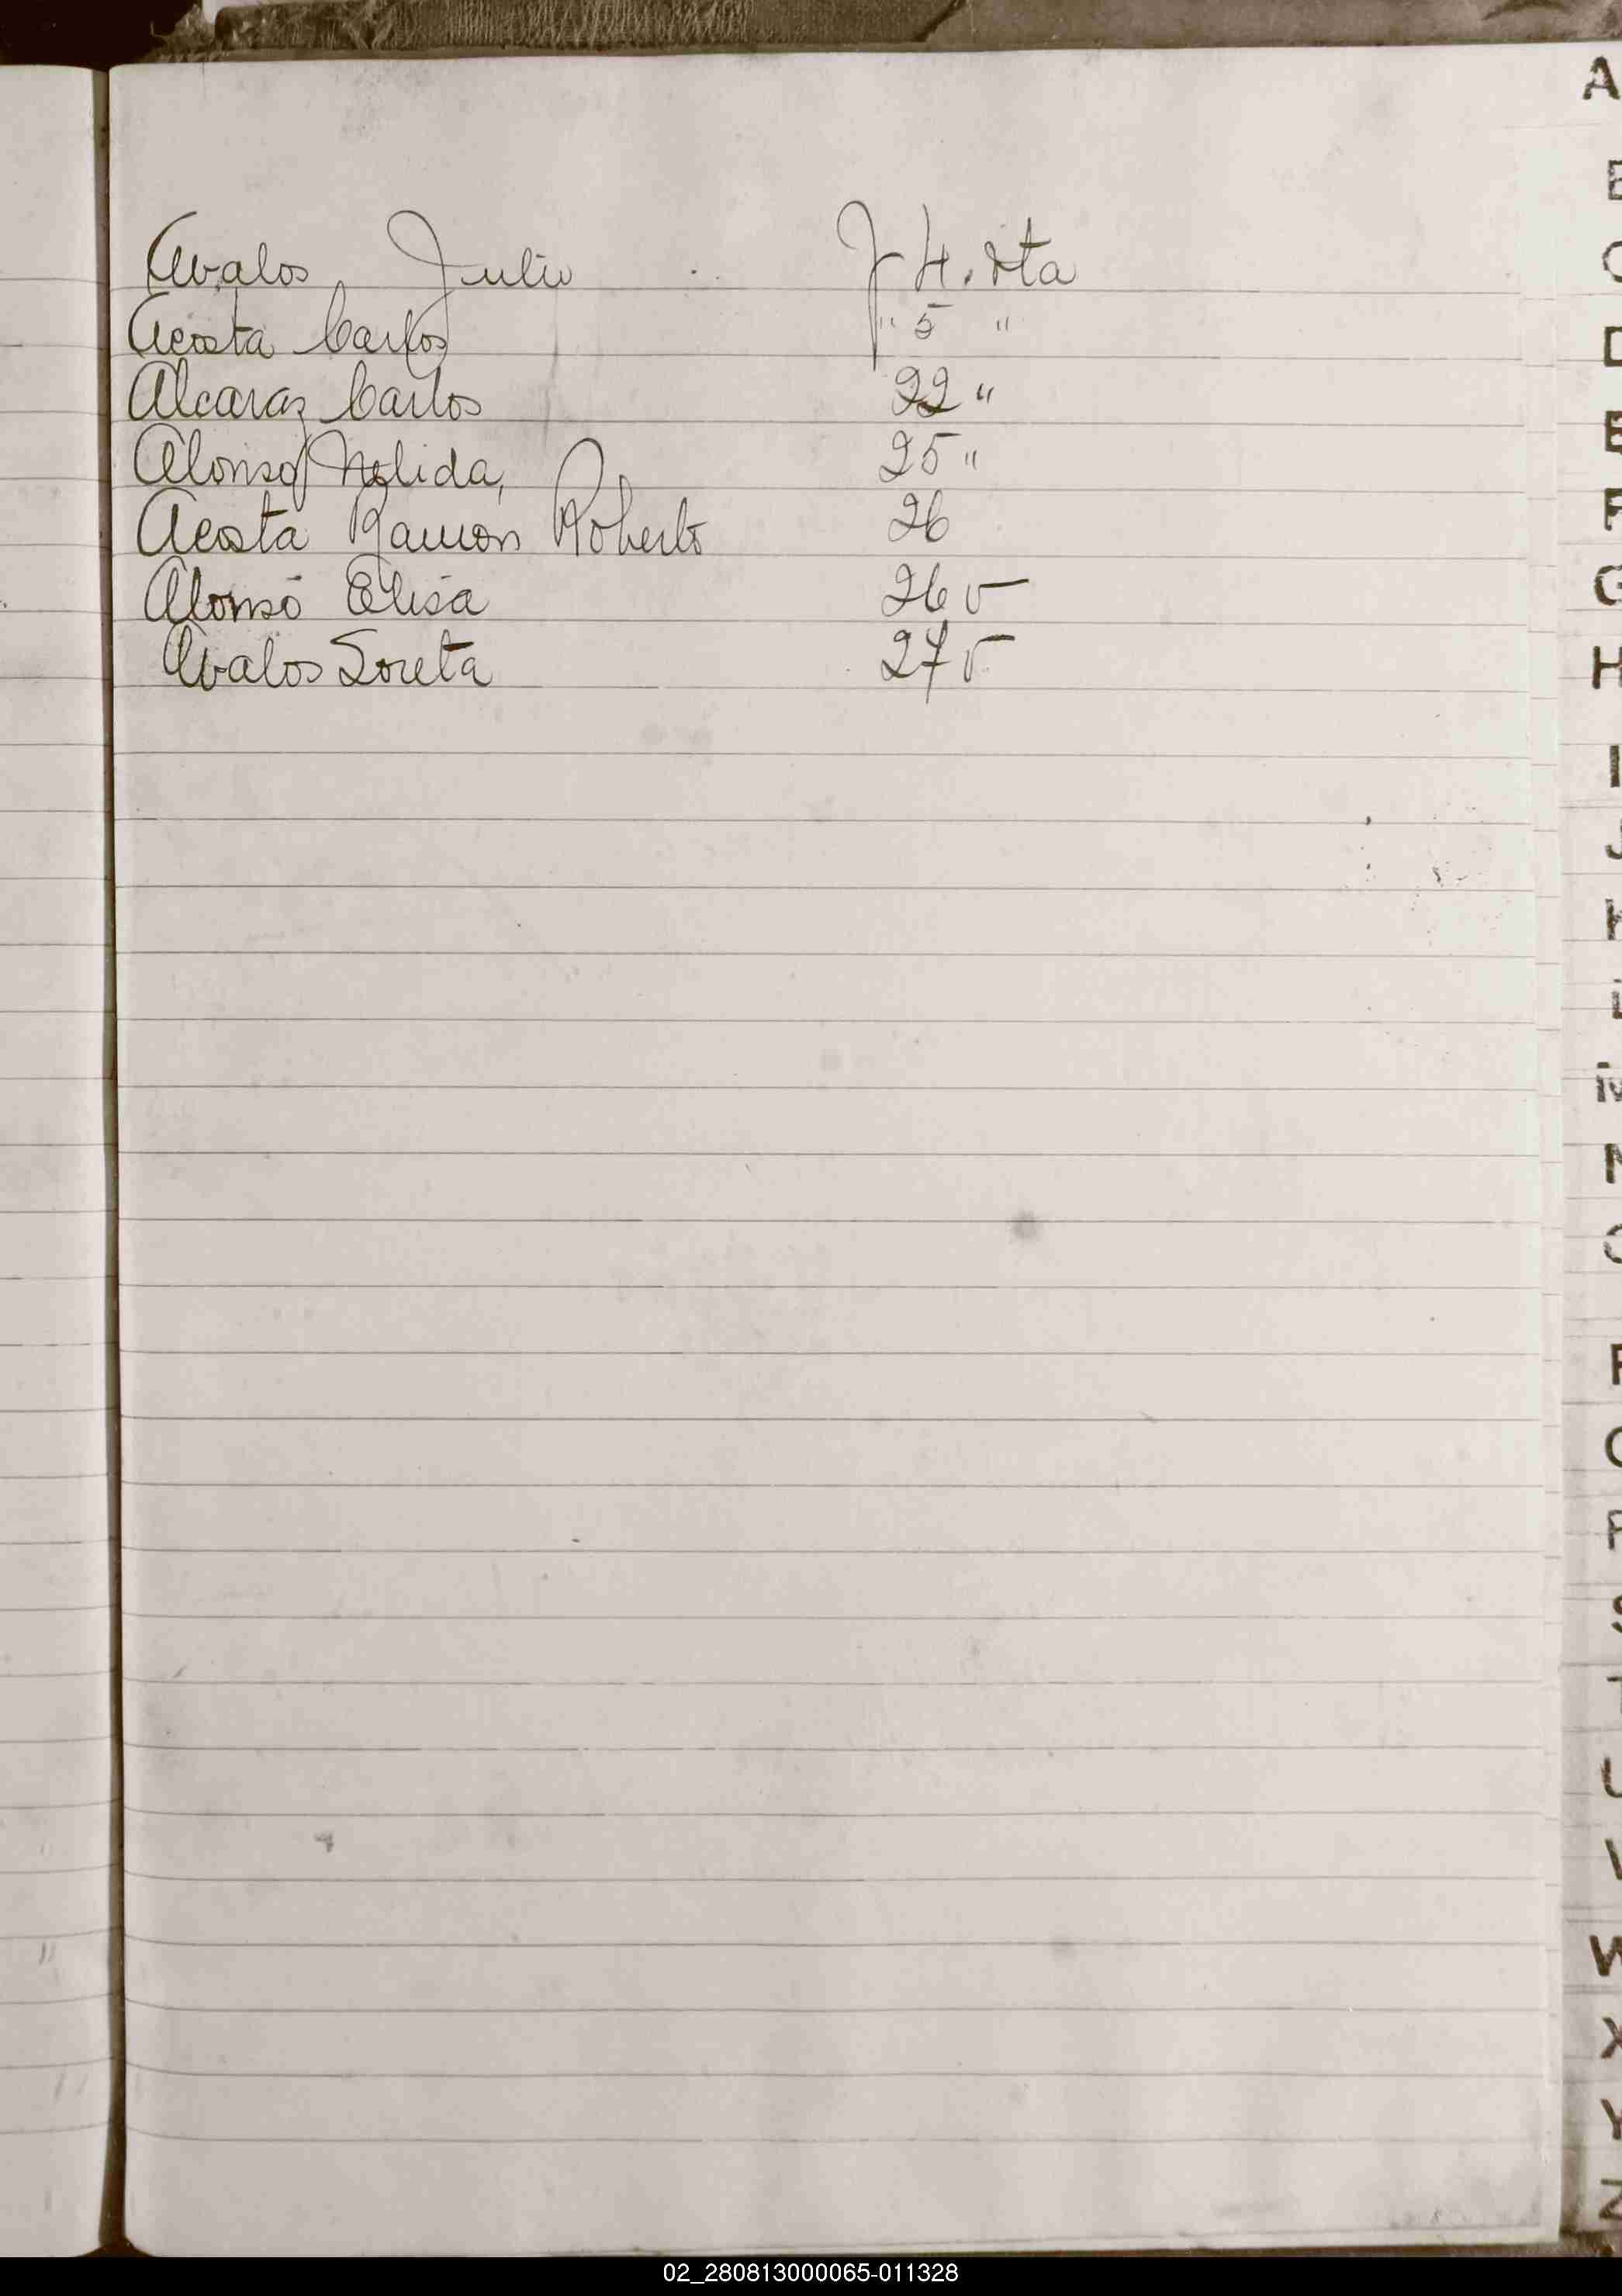 Avalos Julio F 4. vta
Acosta Carlos " 5 "
Alcaraz Carlos 22 "
Alonso Nelida, 25 "
Acosta Ramon Roberto 26
Alonso Elisa 26 v
Avalos Loreta 27 v
A
B
C
D
E
F
G
H
I
J
K
L
M
N
O
P
Q
R
S
T
U
V
W
X
Y
Z
02_280813000065-011328